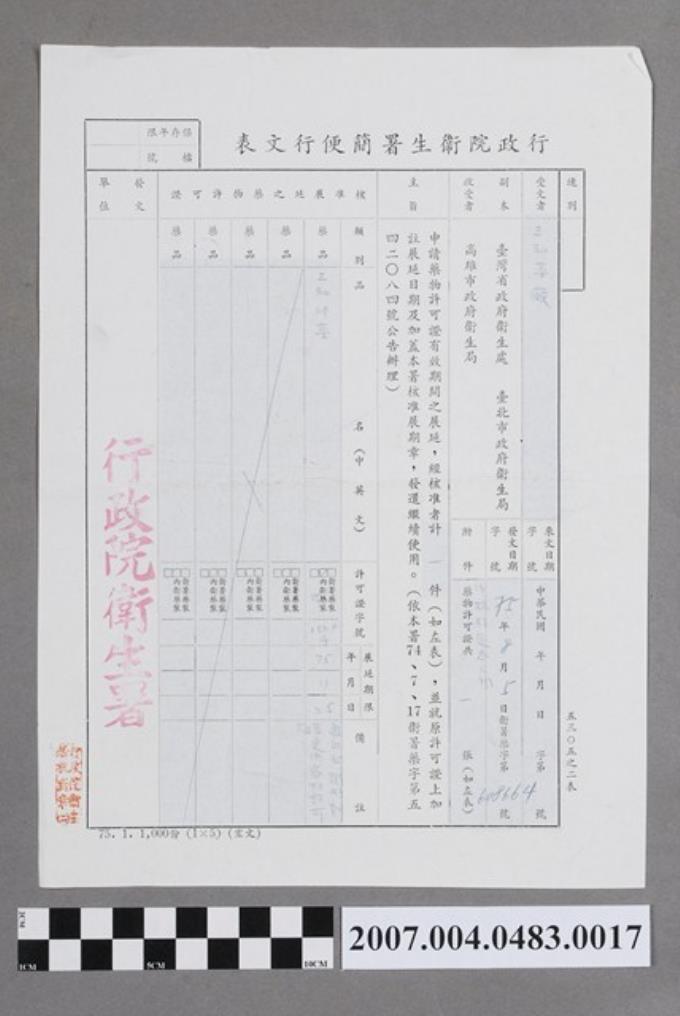 行政院衛生署簡便行文表
保存年限
檔號
速別
受文者
副本收受者
臺灣省政府衛生處 臺北市政府衛生局
高雄市政府衛生局
來文日期字號
中華民國 年 月 日 字第 號
發文日期字號
75年8月5日衛署藥字第608664號
附件
藥物許可證共 一 張(如左表)
主旨
申請藥物許可證有效期間之展延,經核准者計 一 件(如左表),並就原許可證上加
註展延日期及加蓋本署核准展期章,發還繼續使用。(依本署74、7、17衛署藥字第五
四二〇八四號公告辦理)
核准展延之藥物許可證
類別
品名(中英文)
許可證字號
展延期限
年月日
備註
藥品
衛署藥製
內衛藥製
藥品
衛署藥製
內衛藥製
藥品
衛署藥製
內衛藥製
藥品
衛署藥製
內衛藥製
藥品
衛署藥製
內衛藥製
發文單位
行政院衛生署
五三〇五之二表
75. 1. 1,000份 (1×5) (宏文)
1CM
1CM
5CM
10CM
2007.004.0483.0017